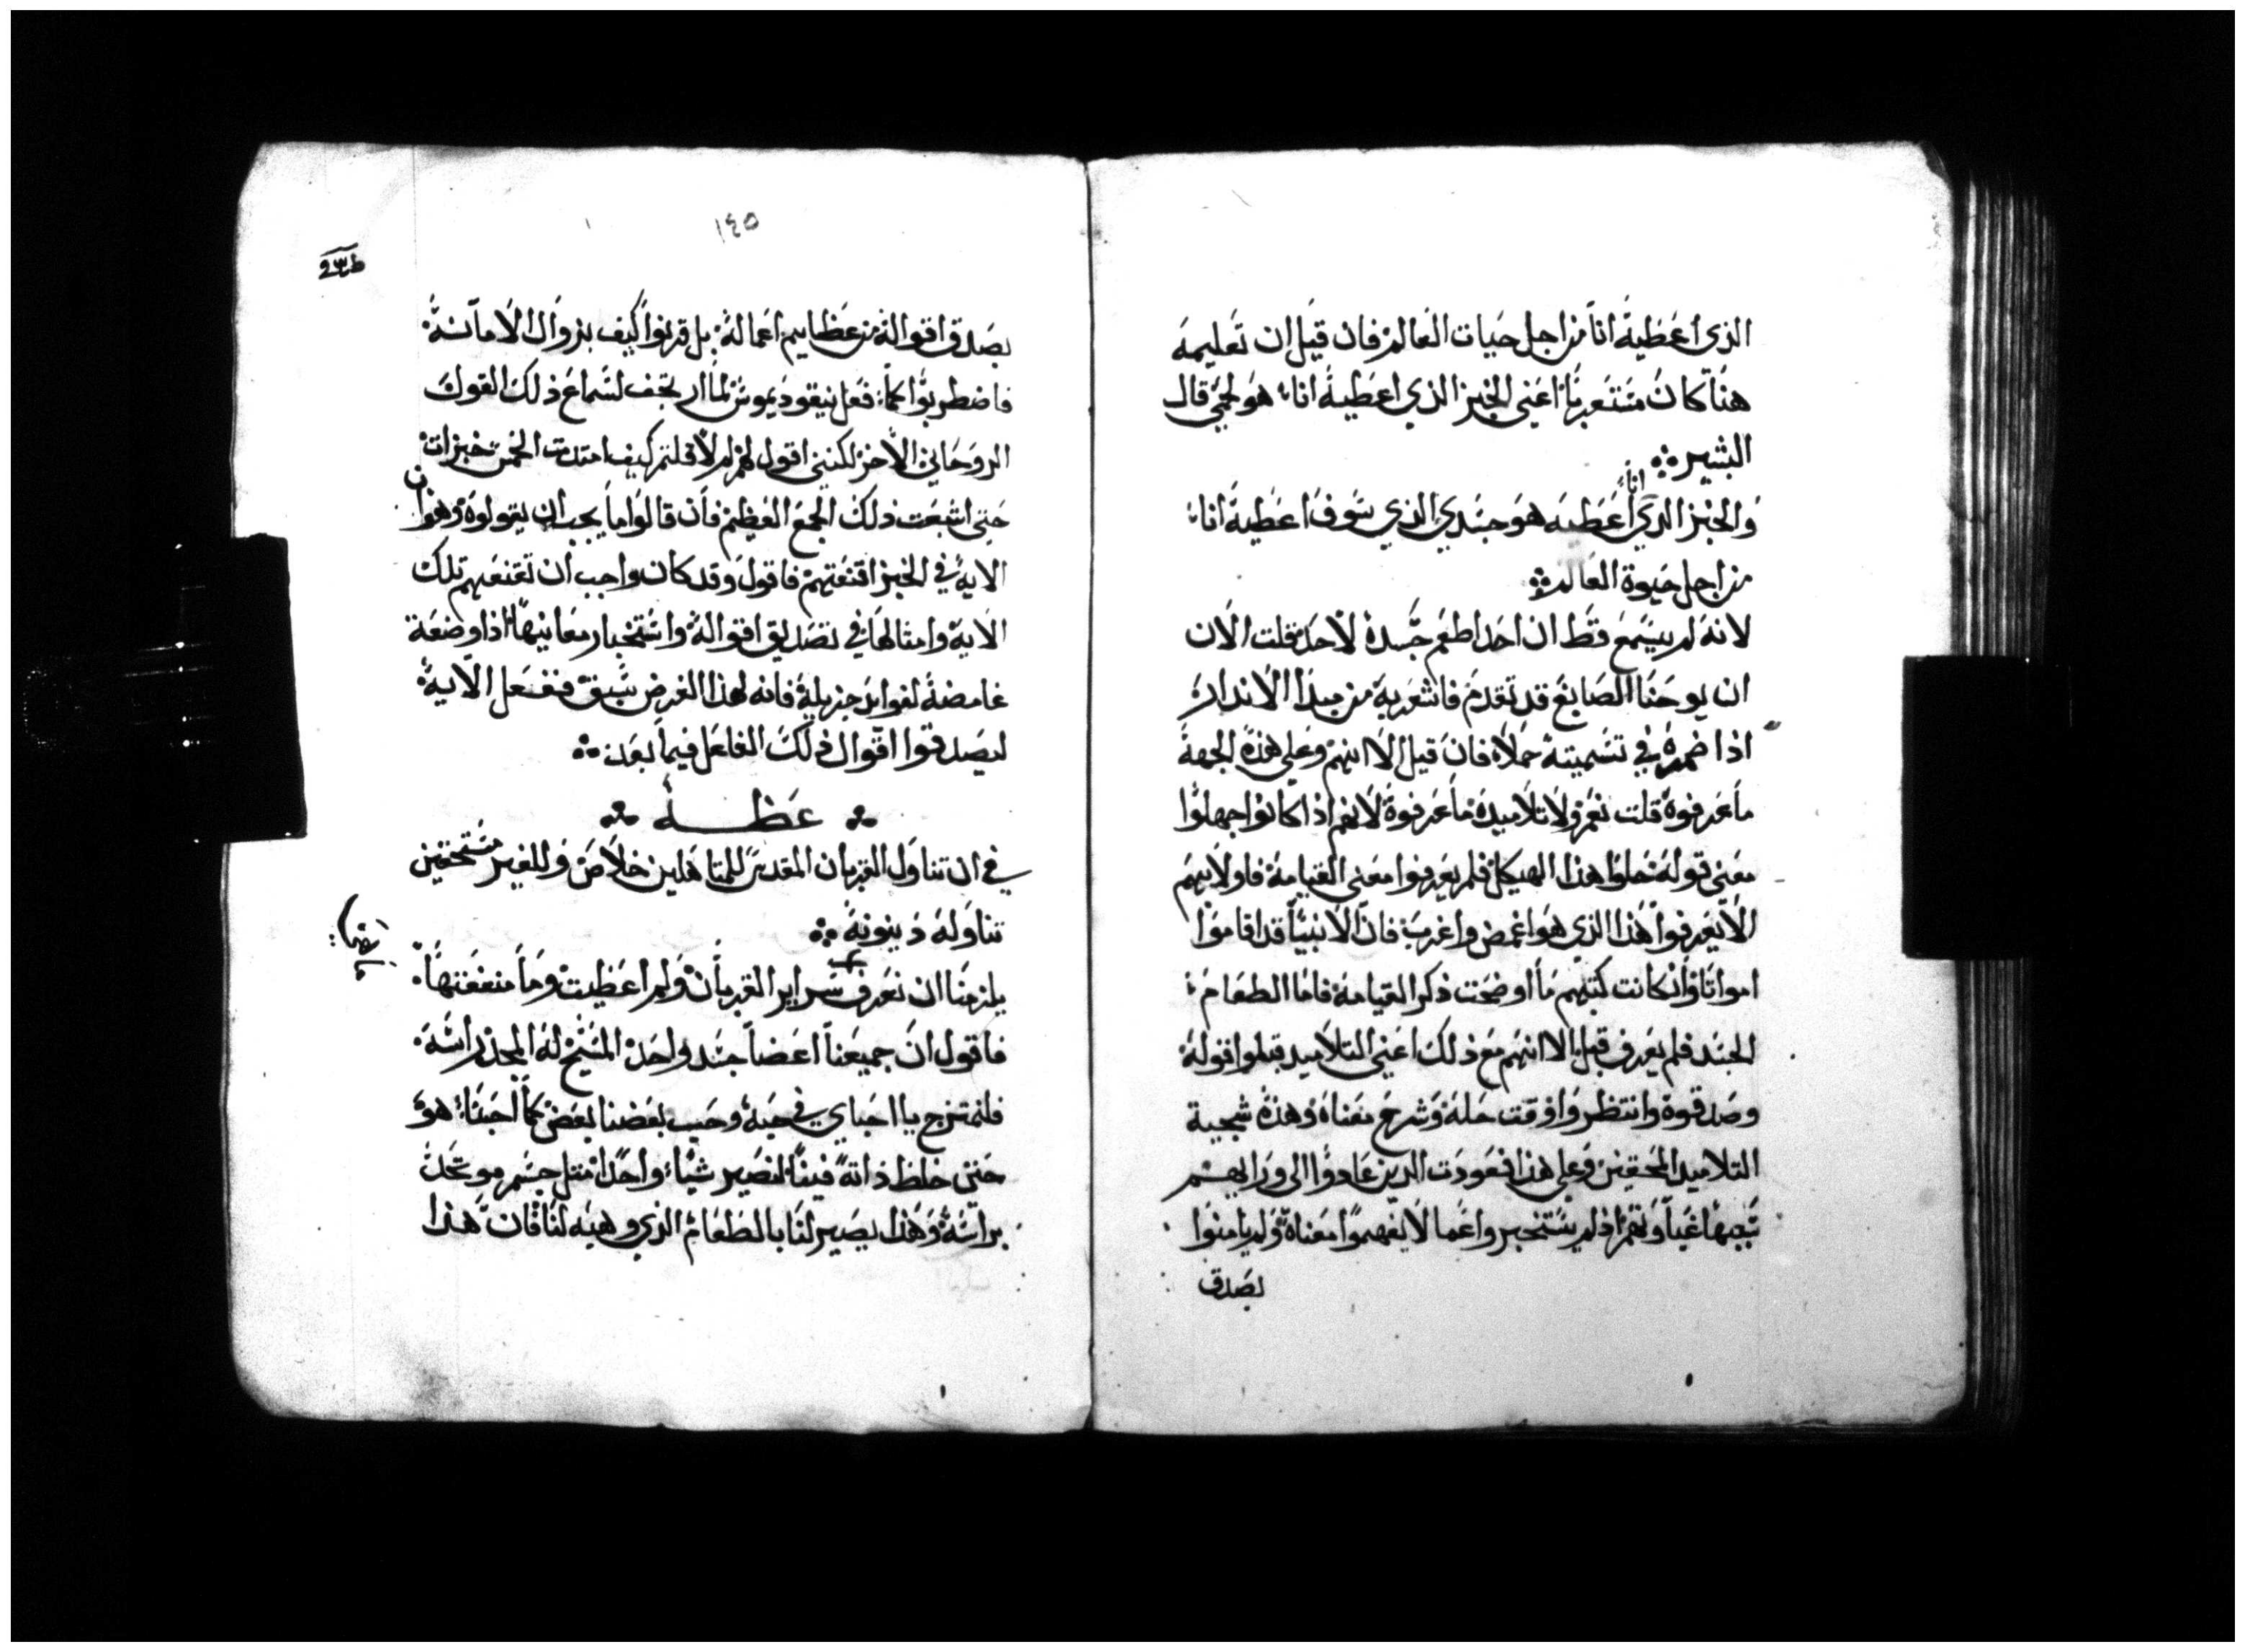 الذي اعَطيهَ اناَ من اجل حَيات العَالم فان قيَل ان تَعليمهَ
هنَا كانُ مسَتغربًا اعَني الخبز الذي اعَطيهُ اناَ هوَ لحمي قال
البشير ؞
وَالخبز الذي اناَ اعَطيَه هوَ جسَدي الذي سَوفَ اعَطيهُ اناَ
من اجل حَيوة العَالم ؞
لانهَ لم يسَمعَ قَط ان احَد اطعَم جسَدهُ لاحَد قلت الان
ان يوحَنا الصَابغ قد تقدمَ فاشعَر بهِ من مبدَا الاندار
اذا ضمرهُ في تسَميتهُ حمَلاً فان قيل الا انهم وعَلى هذهَ الجهةَ
ماَ عَرفوهُ قلت نعَم ولا تلاميدهَ ماَ عَرفوهُ لانهم اذا كانوا جهلوا
معَنى قولهَ حَلوا هذا الهيكل فلم يعَرفوا معَنى القيامةَ فاولايهَم
الا يَعَرفوا هذا الذي هوَ اغمض واغرب فان الانبيَا قد اقاموَا
امواتَا وان كانت كتبهم ماَ اوضحَت ذكر القيامةَ فاما الطعَام
الجسَد فلم يعَرف قبل الا انهَم معَ ذلكَ اعَني التلاَميد قبلوا قولهُ
وصَدقوهُ وانتظروا وقت حَلهَ وَشرحَ معَناهُ وَهذهَ سَجية
التلاميد المحَقين وَعَلى هذا فعَودَت الدين عَادوا الى ورَايهم
سَببها غبَاوَتهم اذ لم يسَتخبروا عَما لا يفهموا معَناهُ وَلم يامنوَا
بصَدق
١٤٥
بصَدق اقوالهُ من عَظايم اعَمالهُ بل قرنوا كيف بزوال الاماَنهُ
فاضطربوُا كماَ فعَل نيقوديموسَ لما ارتجف لسَماعَ ذلك القول
الروحَاني الاخر لكنني اقول لهم لم لا قلتم كيف امتدت الخمسَ خبزات
حَتى اشبعَت ذلكَ الجمعَ العَظيم فان قالوَا ماَ يجب ان يقولوهُ وَهوَ ان
الايهَ في الخبز اقنعَتهم فاقول وَقد كان واجب ان تقنعَهم تلك
الايهَ وامثالهَا في تصَديق اقوالهَ واسَتخبار معَانيها اذا وضعَة
غامضةَ لفوايد جزيلهَ فانه لهذا الغرض سَبق ففعَل الايهُ
ليصَدقوا اقوال ذلكَ الفاعَل فيما بعَد ؞
؞ عَظـــــة ؞
في ان تناوَل القربان المقدسَ للمتاهَلين خلاَصَ وَللغير مسَتحَقين
تناولهَ دَينونهَ ؞
يلزمنَا ان نعَرف سَراير القربان وَلم اعَظيت ومَا منفعَتها
فاقول ان جميعَناَ اعَضاَ جسَد واحَد المسَيح لهُ المجد راسَهَ
فلنمتزج يا احَباي في حَبهُ وحَب بعَضنا بعَض كماَ احَبنَا هوَ
حَتى خلط ذاتهَ فينَا لنصَير شيَا واحَدا متل جسَم موتحَد
براسَهُ وَهَذا يصَير لنَا بالطعَام الذي وهبهَ لنَا فان هذا